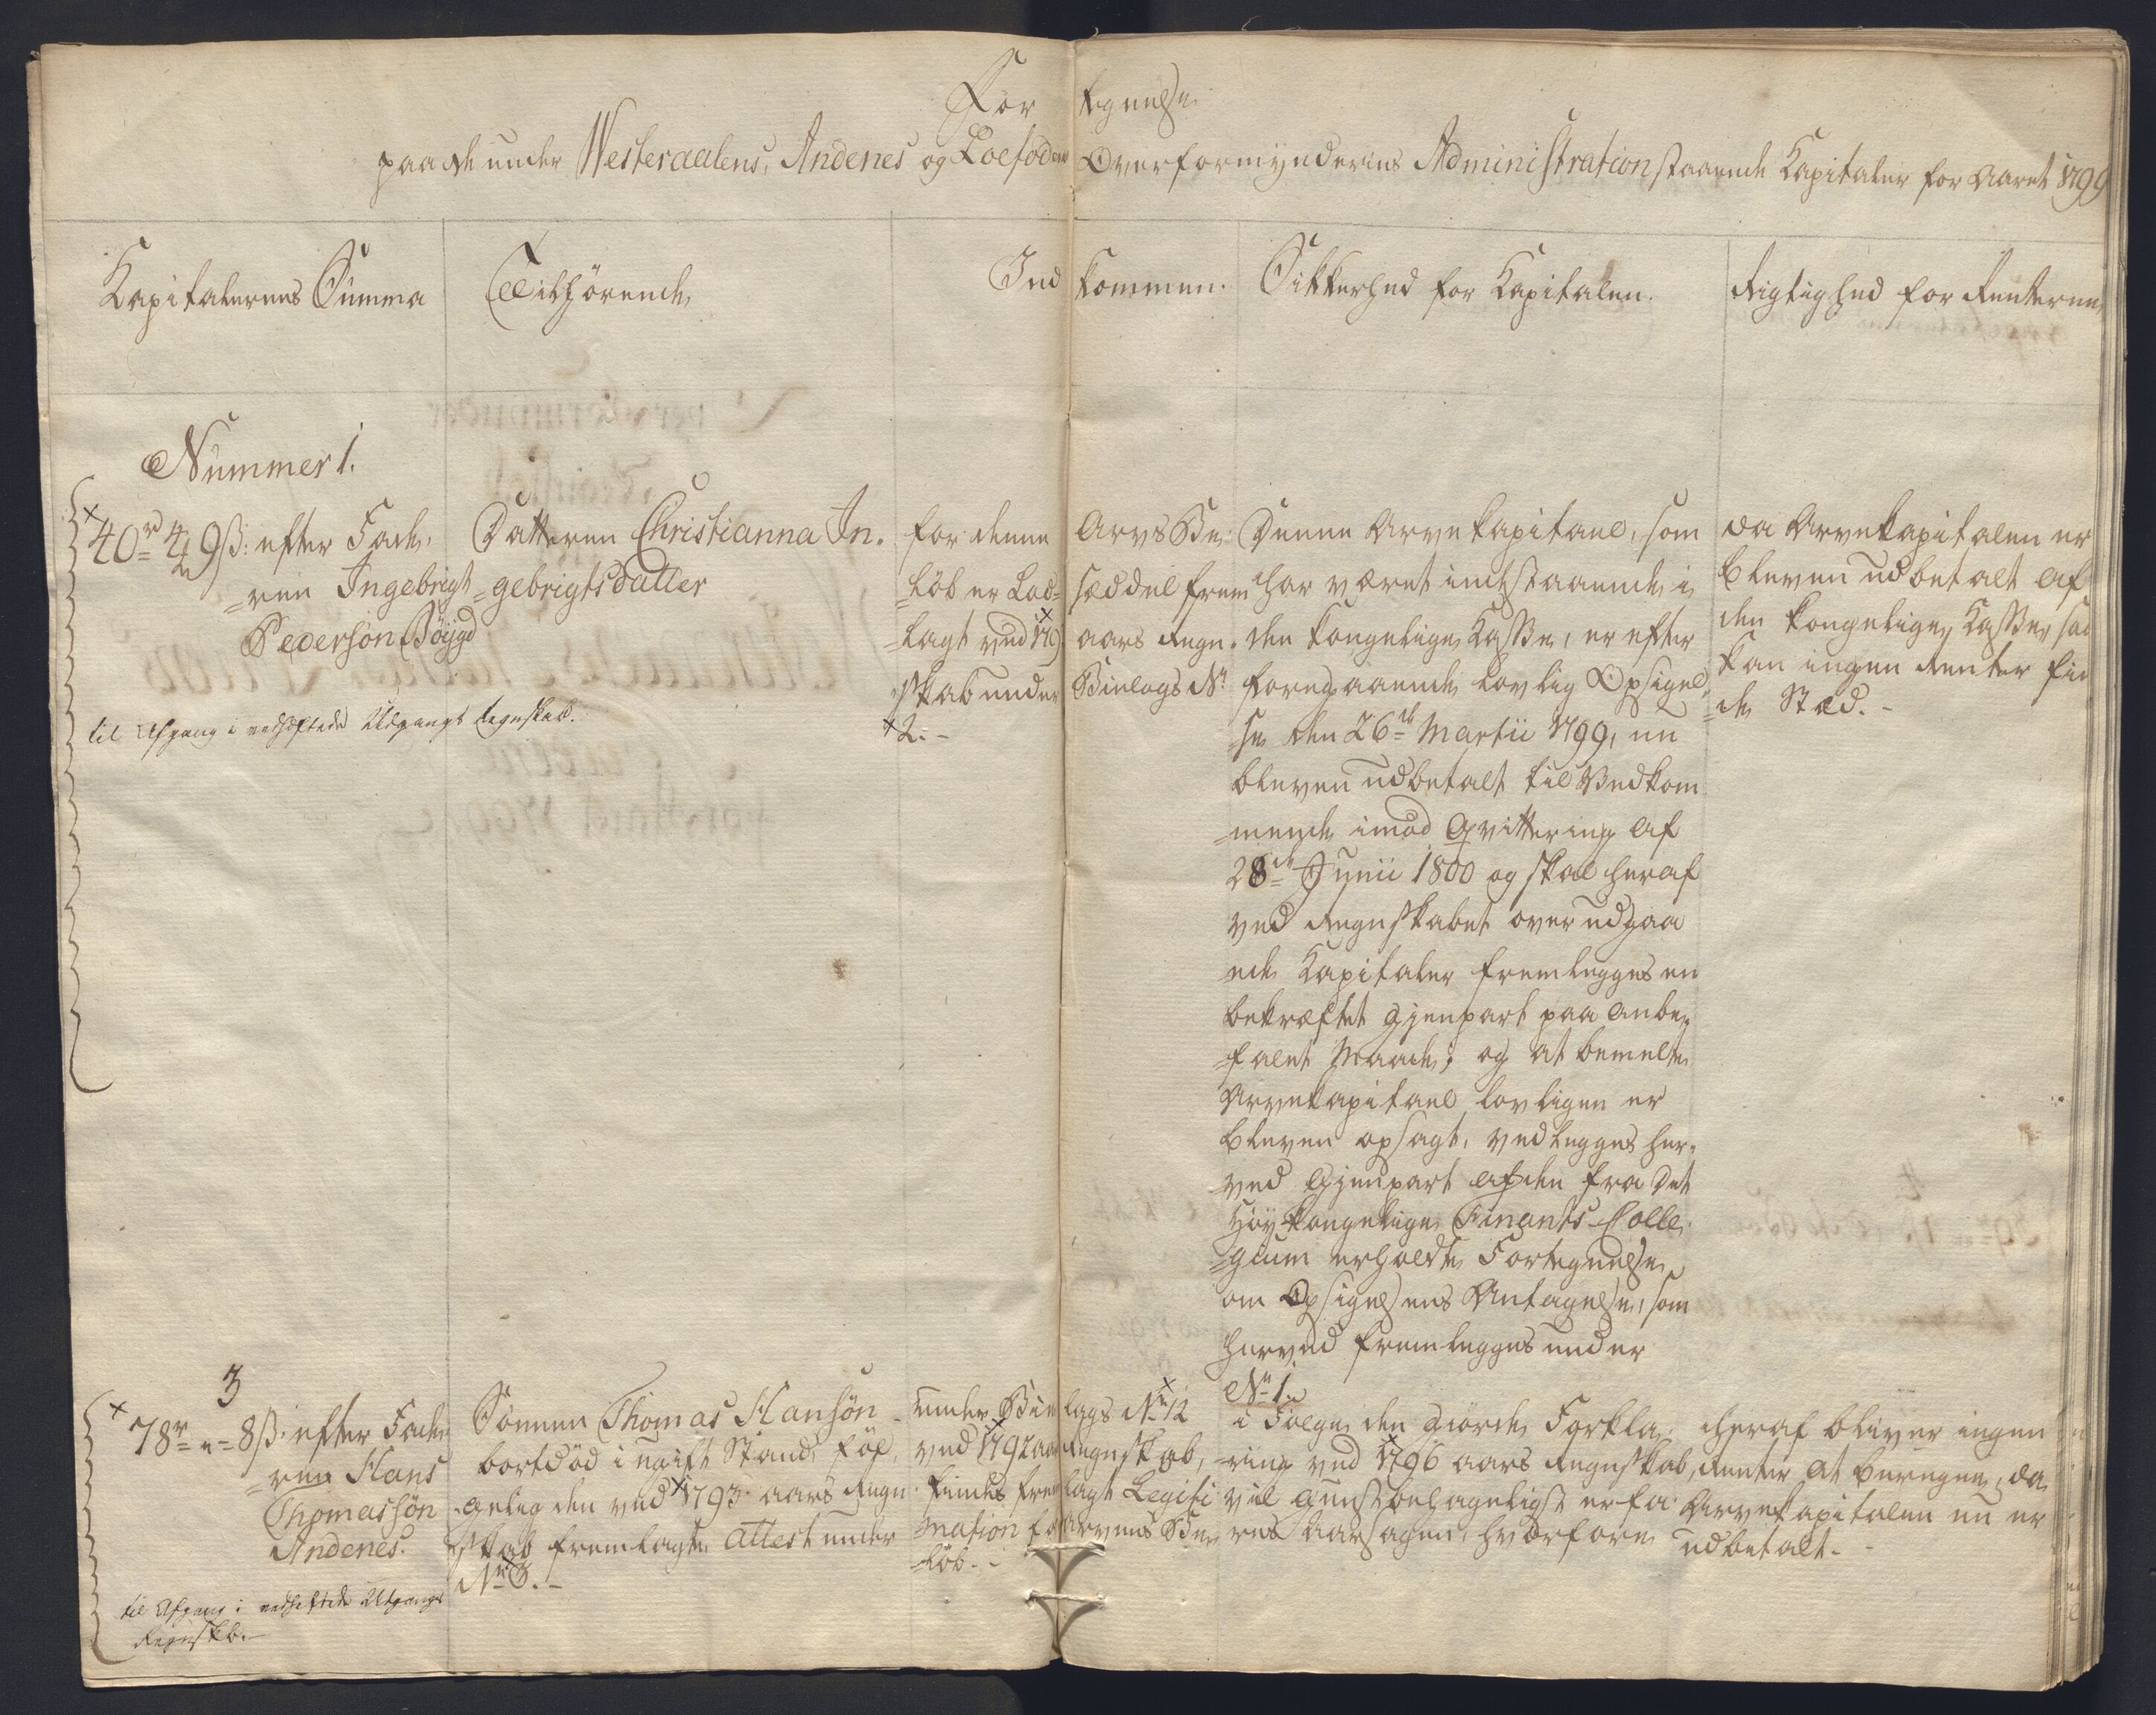 Fortegnelse
paa de under Westeraalens, Andenes og Loefodens Overformynderies Administration staaende Kapitaler for Aaret 1799
Kapitalernes Summa
Tilhørende
Indkommen.
Sikkerhed for Kapitalen.
Rigtighed for Renterne
Nummer 1.
40 r 4 9 ß: efter Fade,
=ren Ingebrigt
Pederson Böygd
til Afgang i vedhæftede Udgangs Regnskab.
Datteren Christianna In.
=gebrigtsdatter
for denne Arvs Be,
=løb er Lod= sæddel frem
=lagt ved 179 aars Regn.
=skab under Bielags No
2. -
Denne Arve Kapitael, som
har været indestaaende i
den Kongelige Kasse, er efter
foregaaende lovlig Opsigel,
=se den 26de Martii 1799, nu
bleven udbetalt til Vedkom
=mende imod Qvittering af
28de Junii 1800 og skal heraf
ved Regnskabet over udgaa
ende Kapitaler fremlegges en
bekræftet Gjenpart paa anbe,
=falet Maade; og at bemelte
Arvekapitael lovligen er
bleven opsagt, vedlegges her,
=ved Gjenpart af den fra Det
Höykongelige Finants-Colle,
=gium erholdte Fortegnelse
om Opsigelsens Antagelse, som
herved fremlegges under
No 1.
da Arvekapitalen er
bleven udbetalt af
den Kongelige Kasse, saa
kan ingen Renter fin
=de Stæd. -
3
78 r - „ - 8 ß. efter Fade,
=ren Hans
Thomassön
Andenes.
til Afgang i vedheftede Udgangs
Regnskb. -
Sönnen Thomas Hansön -
bortdöd i ugift Stand, föl,
=gelig den ved 1793 aars Regn
=skab fremlagte Attest under
No 3. -
under Bielags No 12
ved 1792 aars Regnskab,
findes fremlagt Legiti
=mation for Arvens Be,
=løb. -
i Følge den giorde Forkla,
=ring ved 1796 aars Regnskab,
vil Gunstbehageligst erfa
res Aarsagen, hvorfore
heraf bliver ingen
Renter at beregne, da
Arvekapitalen nu er
udbetalt. -